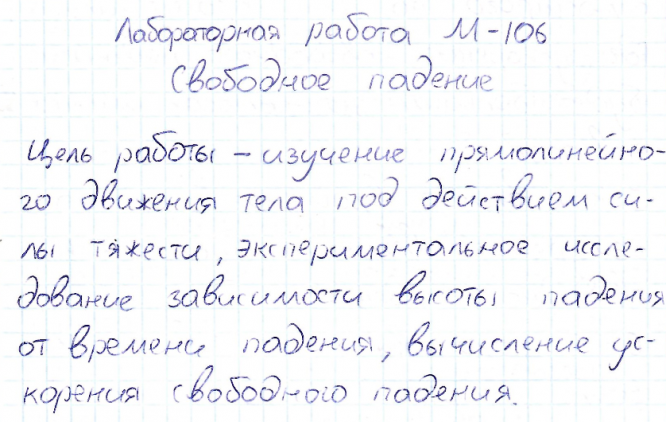 Лабораторная работа М-106
Свободное падение
Цель работы – изучение прямолинейно-
го движения тела под действием си-
лы тяжести, экспериментальное иссле-
дование зависимости высоты падения
от времени падения, вычисление ус-
корения свободного падения.